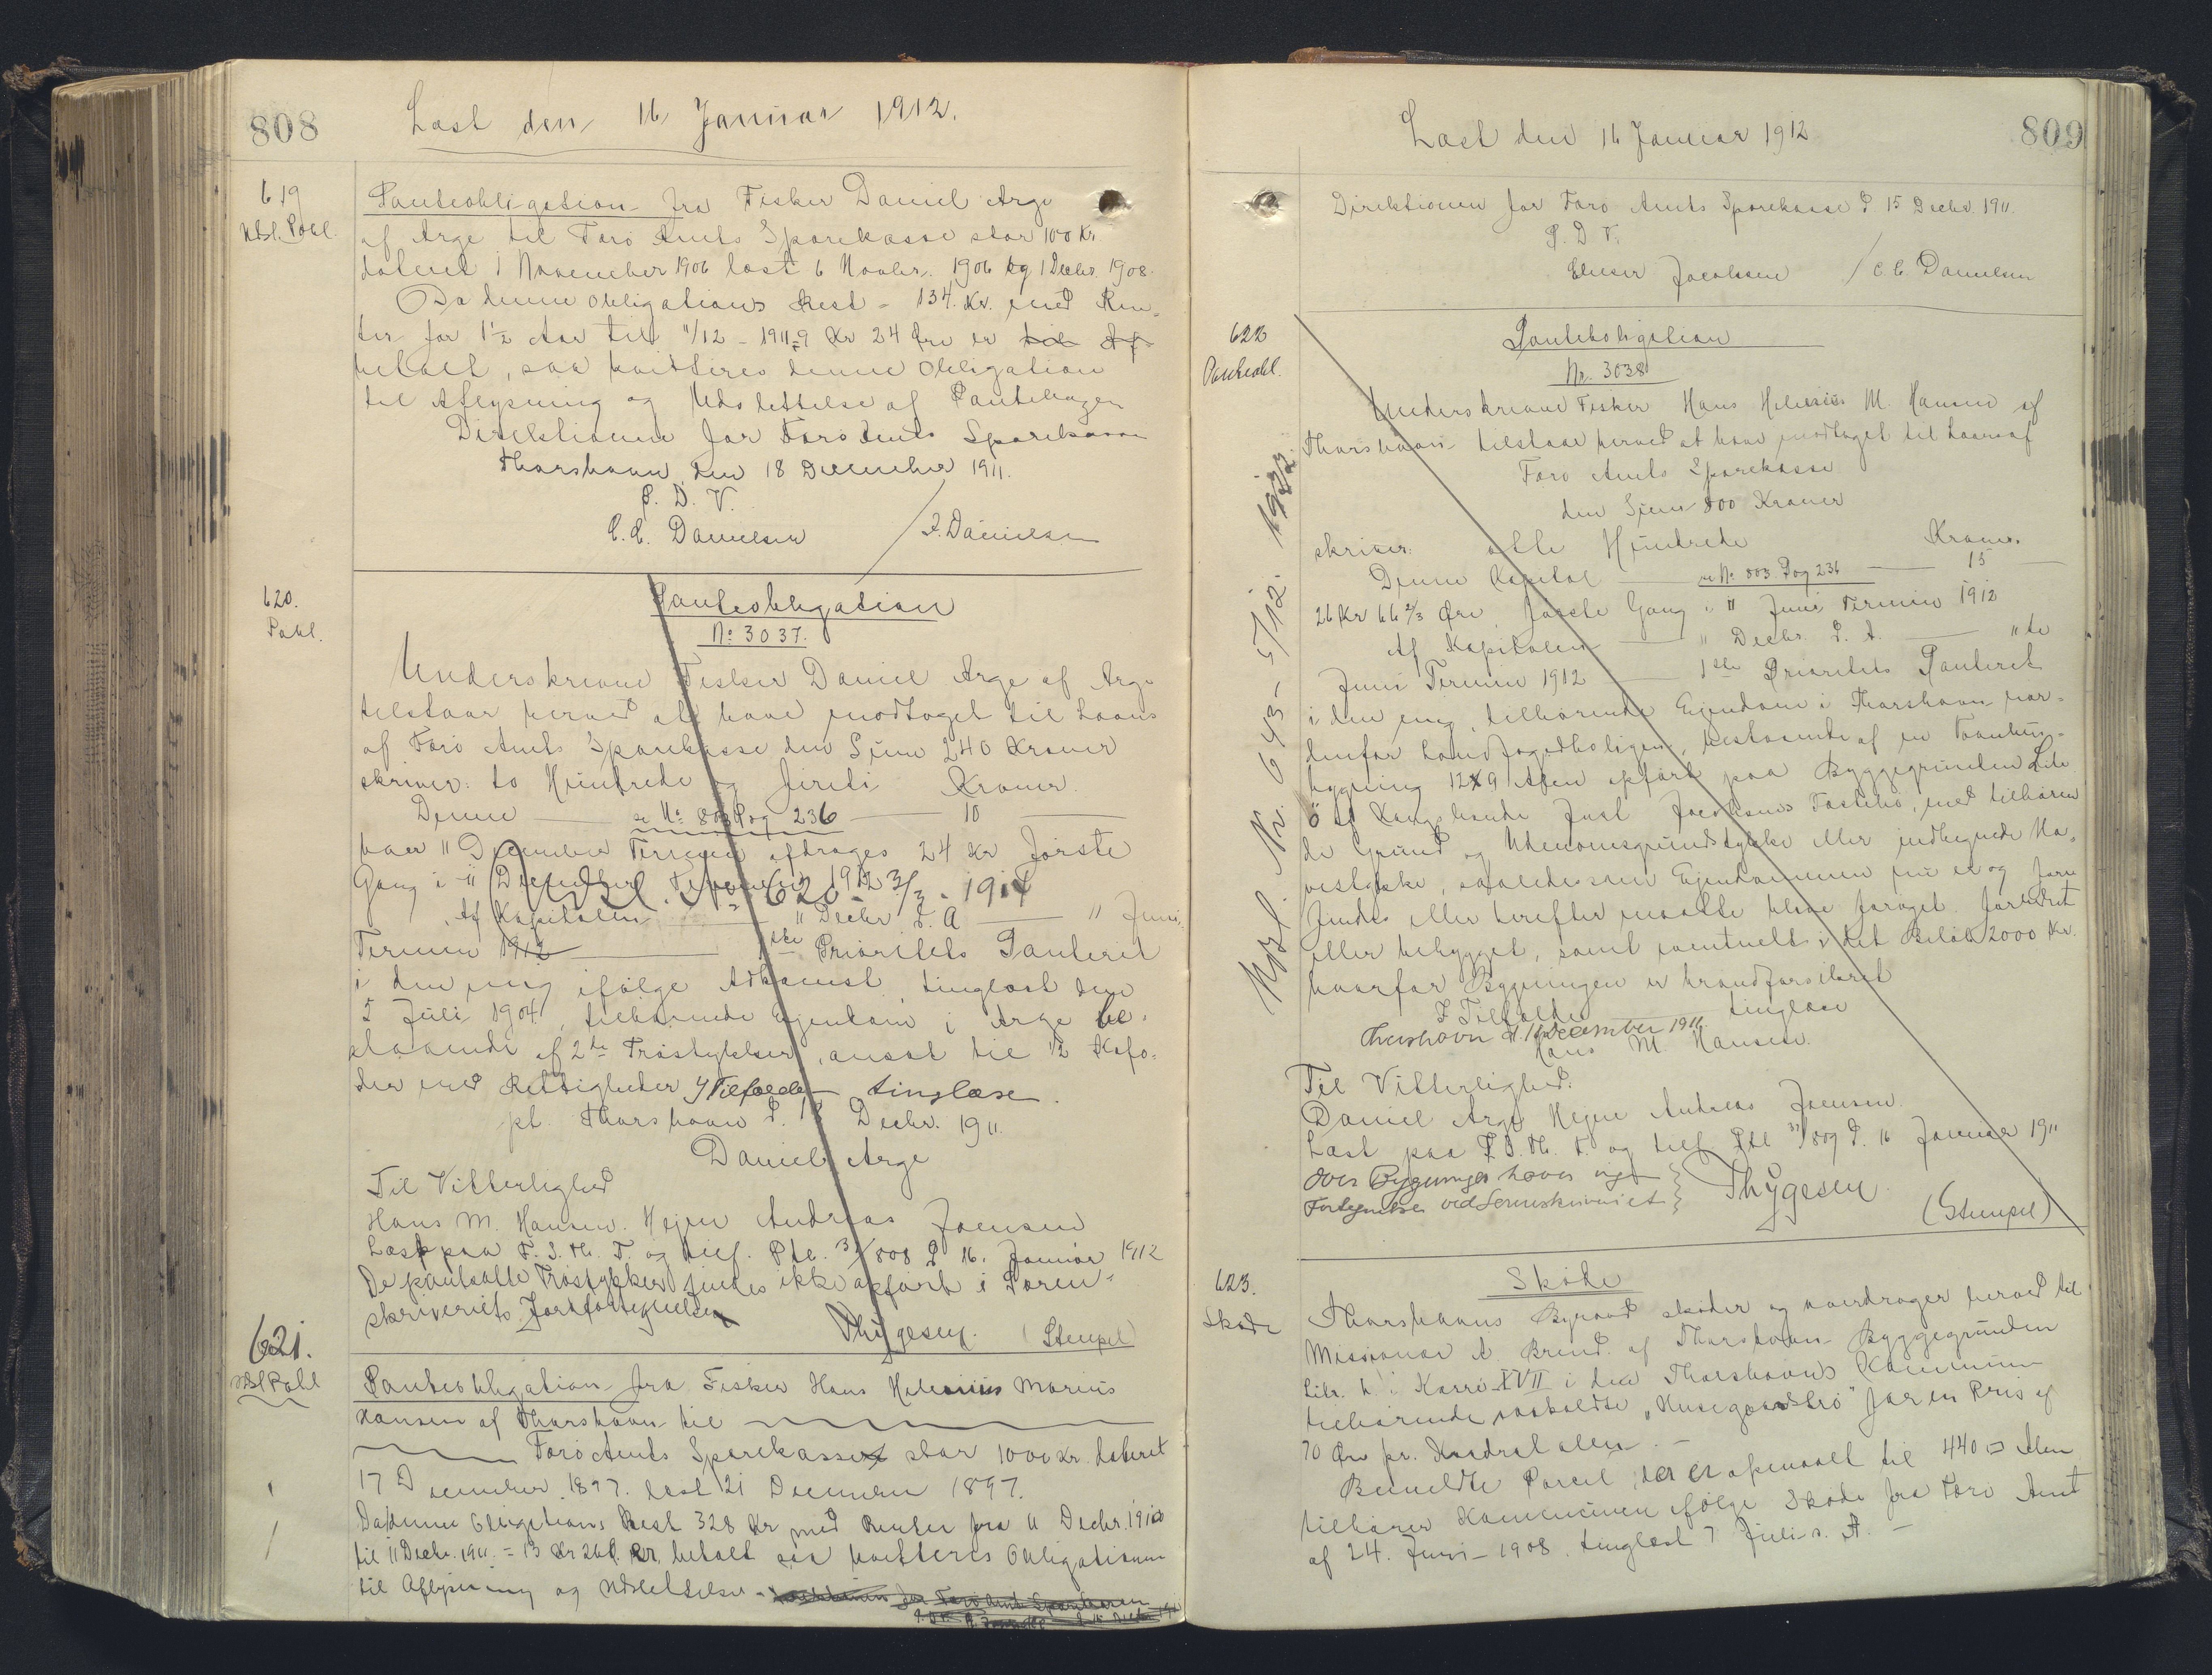 808
Læst den 16 Januar 1912.
619
Udsl. Pobl.
Panteobligation fra Fisker Daniel Arge
af Arge til Færø Amts Sparekasse stor 100 Kr.
dateret 1 November 1906 læst 6 Novbr. 1906 og 1 Decbr. 1908.
Da denne Obligations Rest = 134. Kr. med Ren-
ter for 1½ Aar til 11/12 - 1911 = 9 Kr 24 Øre er til Af-
betalt, saa kvitteres denne Obligation
til Aflysning og Udslettelse af Pantebogen
Direktionen for Færø Amts Sparekasse
Thorshavn den 18 December 1911.
P. D. V.
C. C. Danielsen / J. Danielsen
620.
Pobl.
Panteobligation
No 3037.
Underskrevne Fisker Daniel Arge af Arge
tilstaar herved at have modtaget til Laans
af Færø Amts Sparekasse den Sum 240 Kroner
skriver: to Hundrede og firti Kroner.
Denne se No 803 Pag 236 10
hver 11 December Termin afdrages 24 Kr første
Gang i 11 December Terminen 1912
Udsl. No 620 - 3/3 - 1914
Af Kapitalen 11 Decbr d. A 11 Juni
Termin 1912 1ste Prioritets Panteret
i den mig ifølge Adkomst tinglæst den
5 Juli 1904, tilhørende Ejendom i Arge be-
staaende af 2de Trøstykker, ansat til ½ Kofo-
der med Rettigheder I Tilfælde tinglæse.
pt. Thorshavn d. Decbr. 1911.
Daniel Arge
Til Vitterlighed
Hans M. Hansen. Hejne Andreas Joensen
Læst paa F. S. Th. T. og tilf. Ptl. 3/808 d. 16. Januar 1912
De pantsatte Trøstykker findes ikke opført i Soren-
skriveriets Jordfortegnelse
Thygesen. (Stempel)
621.
Udsl Pobl
Panteobligation fra Fisker Hans Helenius Marius
Hansen af Thorshavn til
Færø Amts Sparekasse stor 1000 Kr. dateret
17 December 1897. læst 21 December 1897.
Da denne Obligations Rest 328 Kr med Renter fra 11 Decbr. 1910
til 11 Decbr. 1911. = 13 Kr 26 er betalt saa kvitteres Obligationen
til Aflysning og Udslettelse.
809
Læst den 16 Januar 1912
Direktionen for Færø Amts Sparekasse d 15 Decbr. 1911.
P. D. V.
Elieser Jacobsen / C. C. Danielsen
622
Panteobl.
Panteboligation
No. 3038
Underskrevne Fisker Hans Helenius M. Hansen af
Thorshavn tilstaar herved at have modtaget til Laans af
Færø Amts Sparekasse
den Sum 800 Kroner
skriver: otte Hundrede Kroner.
Denne Kapital se No 803 Pag 236 15
26 Kr 66 2/3 Øre første Gang i 11 Juni Termin 1912
Af Kapitalen 11 Decbr. d. A. 11te
Juni Termin 1912 1ste Prioritets Panteret
i den mig tilhørende Ejendom i Thorshavn nor-
denfor Landfogedboligen, bestaaende af en Vaanhus-
bygning 12 x 9 Alen opført paa Byggegrunden Litr
Ö af Kongsbonde Just Jacobsens Fæstebo, med tilhøren
de Grund og Udenomsgrundstykke eller indhegnede Ha-
vestykke, saaledes som Ejendommen nu er og fore
findes eller herefter maatte blive forøget forbedret
eller bebygget, samt eventuelt i det Beløb 2000 Kr.
hvorfor Bygningen er brandforsikret
I Tilfælde tinglæse
Thorshavn d. 16 December 1911.
Hans M. Hansen.
Til Vitterlighed:
Daniel Arge Hejne Andreas Joensen.
Læst paa F. S. Th. T. og tilf. Ptl 31/809 d. 16 Januar 1911
Over Bygninger haves ingen
Fortegnelse ved Sorenskriveriet } Thygesen (Stempel)
Udsl. Nr. 643 - 5/12. 1922.
623.
Skøde
Skøde
Thorshavns Byraad skøder og overdrager herved til
Missionær A Brend. af Thorshavn Byggegrunden
Litr. h i Karré XVII i den Thorshavns Kommune
tilhørende saakaldte "Husegaardstrø" for en Pris af
70 Øre pr. Kvadrat Alen. -
Bemeldte Parcel, der er opmaalt til 440 □ Alen
tilhører Kommunen ifølge Skøde fra Færø Amt
af 24. Juni - 1908. tinglæst 7 Juli s. A. -